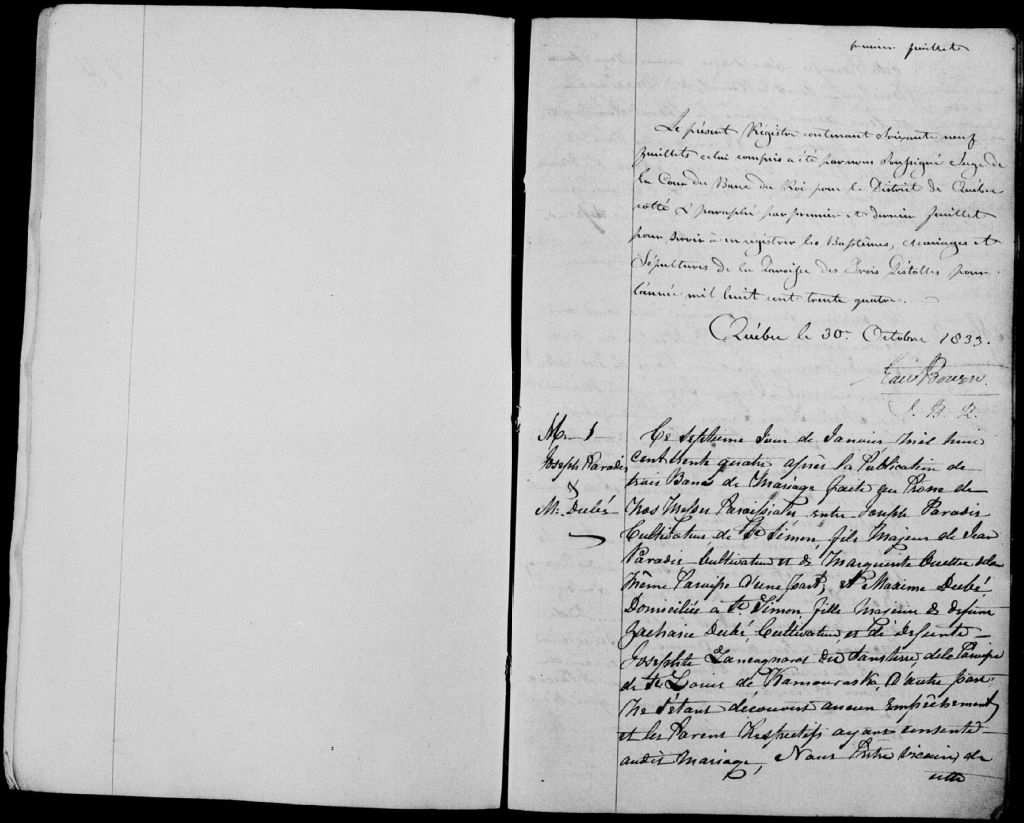 premier feuillet
Le présent Régistre contenant Soixante neuf
feuillets celui compris a été par nous Soussigné Juge de
la Cour du Banc du Roi pour le District de Québec
cotté & paraphé par premier et dernier feuillet
pour servir à enrégistrer les Baptêmes, Mariages et
Sépultures de la Paroisse des Trois Pistolles pour
l'année mil huit cent trente quatre.
Québec le 30 Octobre 1833.
Edw Bowen
J. B. R.
M. 1
Joseph Paradis
&
M. Dubé
Ce septieme Jour de Janvier, Mil huit
cent trente quatre après la Publication de
trois Bans de Mariage faite au Prône de
Nos Messes Paroissiales entre Joseph Paradis
Cultivateur de St. Simon, fils Majeur de Jean
Paradis Cultivateur et de Marguerite Ouellet de la
Même Paroisse d'une part, et Maxime Dubé
Domiciliée à St. Simon, fille Majeure de defunt
Zacharie Dubé, Cultivateur, et de defunte
Josephte de la Paroisse
de St. Louis de Kamouraska, d'autre part
Ne s'étant découvert aucun Empêchement
et les Parens Respectifs ayant consenti
audit Mariage, Nous Prêtre vicaire de
cette